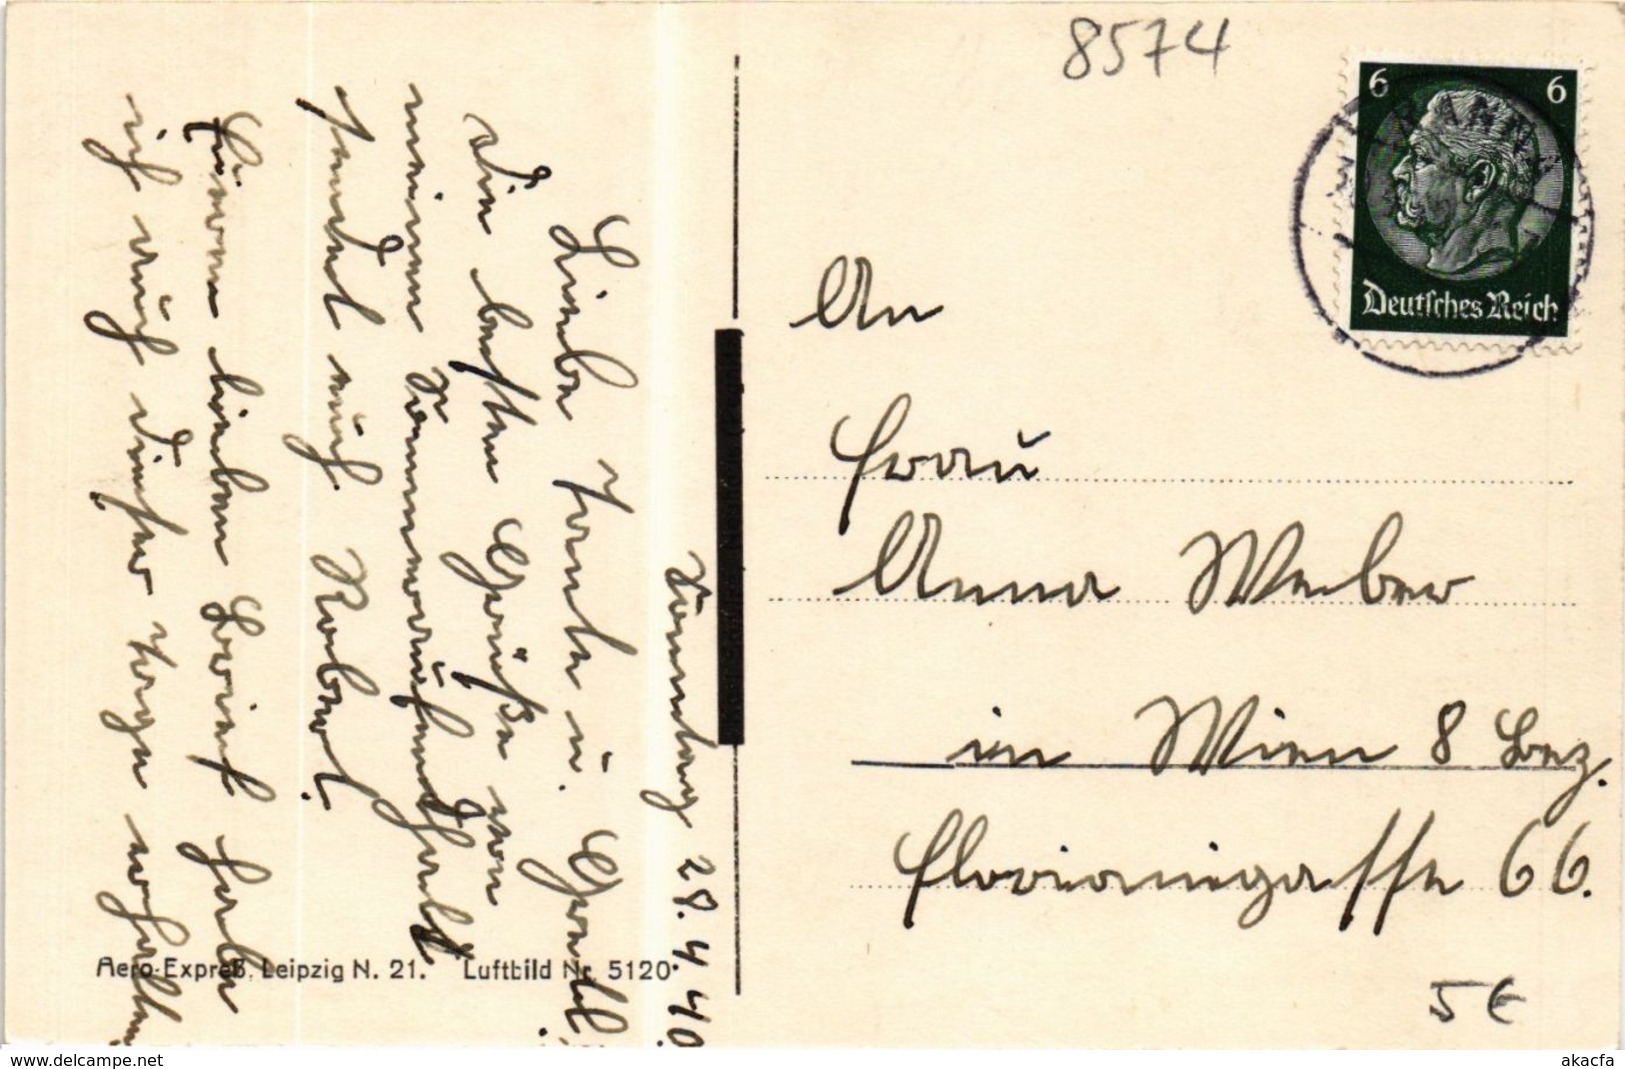 8574
6 6
Deutsches Reich
An
Frau
Anna Weber
in Wien 8 Bez.
Florianigasse 66.
5 €
Sonntag 28.4.40.
Liebe Tante u. Gretl!
Die besten Grüße von
meinem Sonnenaufenthalt
sendet euch Robert.
Euren lieben Brief habe
ich auch dieser Tage erhalten
Aero-Expreß, Leipzig N. 21. Luftbild Nr. 5120
www.delcampe.net
akacfa